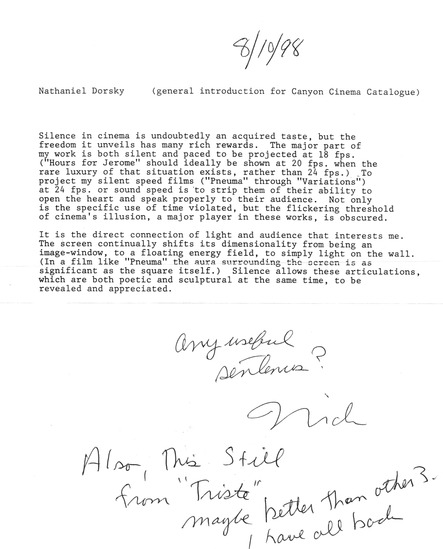 8/10/98
Nathaniel Dorsky (general introduction for Canyon Cinema Catalogue)
Silence in cinema is undoubtedly an acquired taste, but the
freedom it unveils has many rich rewards. The major part of
my work is both silent and paced to be projected at 18 fps.
("Hours for Jerome" should ideally be shown at 20 fps. when the
rare luxury of that situation exists, rather than 24 fps.) To
project my silent speed films ("Pneuma" through "Variations")
at 24 fps. or sound speed is to strip them of their ability to
open the heart and speak properly to their audience. Not only
is the specific use of time violated, but the flickering threshold
of cinema's illusion, a major player in these works, is obscured.
It is the direct connection of light and audience that interests me.
The screen continually shifts its dimensionality from being an
image-window, to a floating energy field, to simply light on the wall.
(In a film like "Pneuma" the aura surrounding the screen is as
significant as the square itself.) Silence allows these articulations,
which are both poetic and sculptural at the same time, to be
revealed and appreciated.
any useful
sentences?
Nick
Also, This Still
from "Triste"
maybe better than other 3.
I have all back